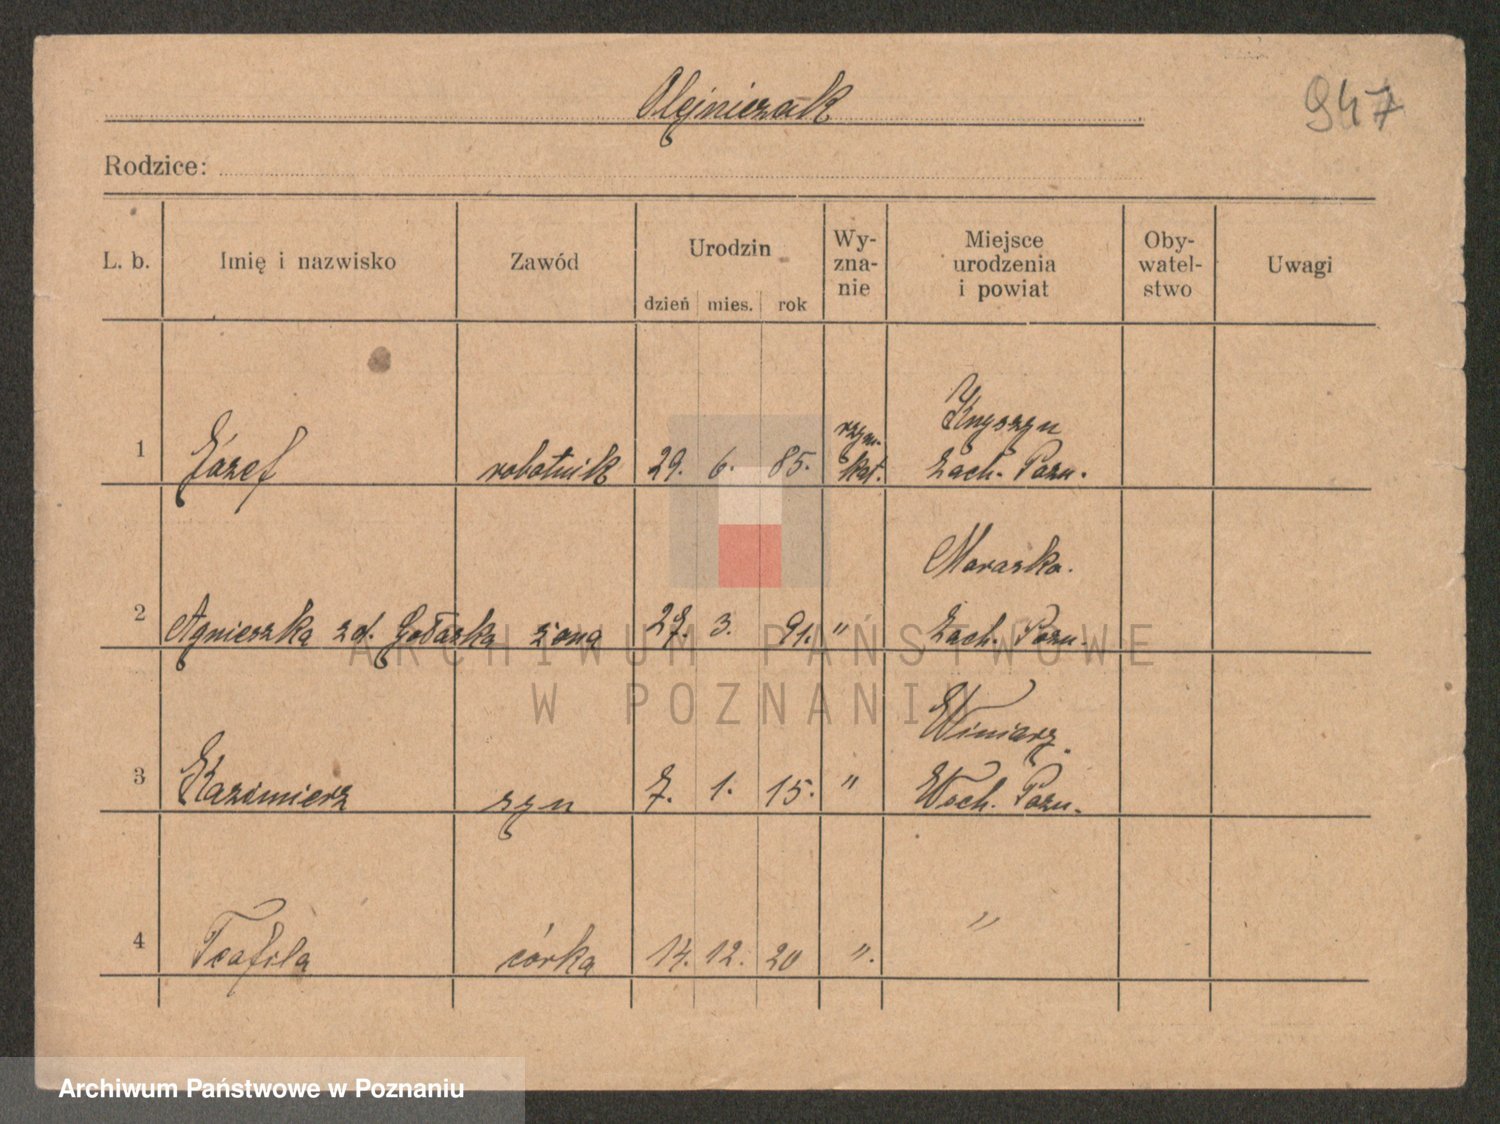 Olejniczak
947
Rodzice:
L. b. Imię i nazwisko Zawód Urodzin dzień mies. rok Wy-zna-nie Miejsce urodzenia i powiat Oby-watel-stwo Uwagi
rzym. Knyszyn
1 Józef robotnik 29. 6. 85. kat. Zach. Pozn.
Moraska.
2 Agnieszka zd. Gołaska żona 27. 3. 91. " Zach. Pozn.
ARCHIWUM PAŃSTWOWE
W POZNANIU
Winiary.
3 Kazimierz syn 7. 1. 15. " Wsch. Pozn.
"
4 Teofila córka 14. 12. 20 ".
Archiwum Państwowe w Poznaniu